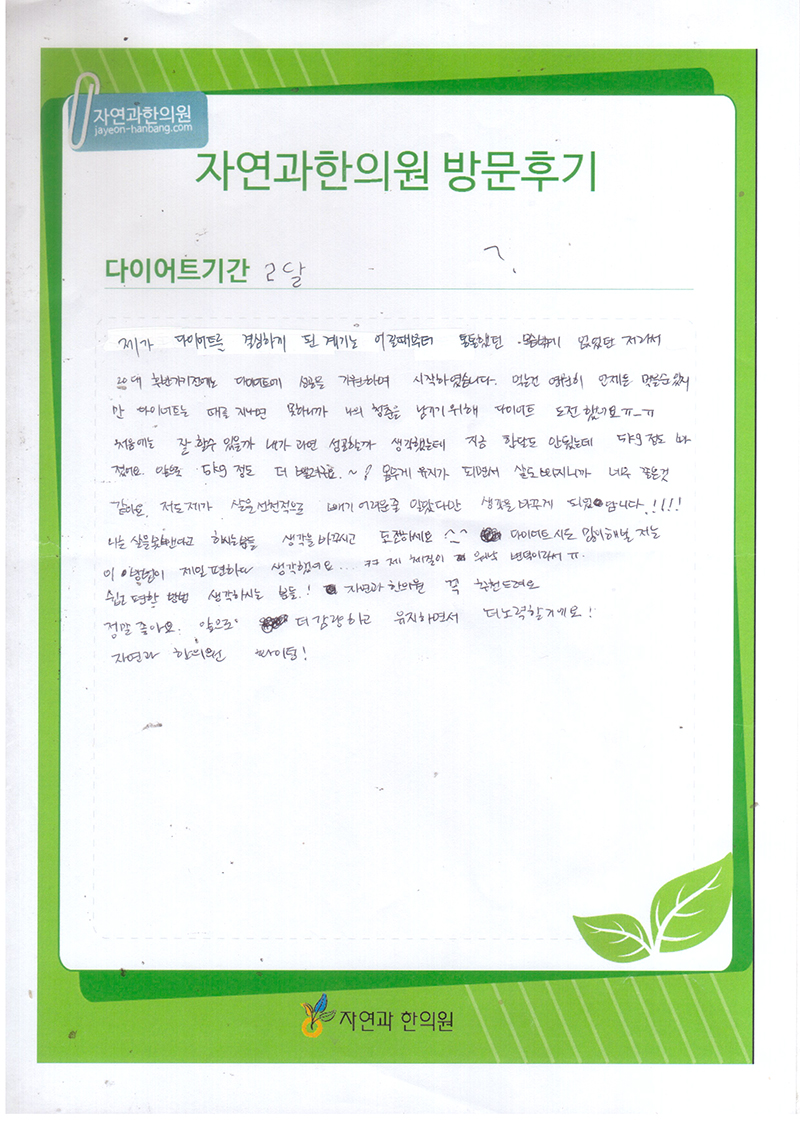 자연과한의원
jayeon-hanbang.com
자연과한의원 방문후기
다이어트기간 2달
제가 다이어트를 결심하게 된 계기는 어릴때부터 통통했던 몸밖에 없었던 저라서
20대 가기전에는 다이어트에 성공을 기원하며 시작하였습니다. 먹는건 영원히 언제든 먹을순있지
만 다이어트는 때를 지나면 못하니까 나의 청춘을 남기기 위해 다이어트 도전 했네요ㅠ_ㅠ
처음에는 잘 할수 있을까 내가 과연 성공할까 생각했는데 지금 한달도 안됬는데 정도 빠
졌어요. 앞으로 정도 더 ~! 몸무게 유지가 되면서 살도 빠지니까 너무 좋은것
같아요. 저도 제가 살을 선천적으로 빼기 어려운줄 알았다만 생각을 바꾸게 되었답니다.!!!!
나는 살을못뺀다고 하시는분들 생각을 바꾸시고 도전하세요 ^_^ 다이어트 시도 많이해본 저는
이 방법이 제일 편하다 생각했어요... ㅋㅋ 제 체질이 워낙 변덕이라서 ㅠ.
쉽고 편한 방법 생각하시는 분들.! 자연과 한의원 꼭 추천드려요
정말 좋아요. 앞으로 더 감량하고 유지하면서 더노력할거에요!
자연과 한의원 화이팅!
자연과 한의원